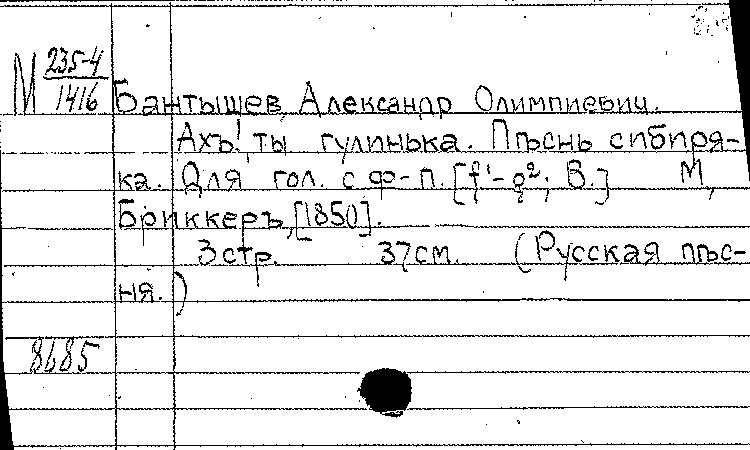 М 235-4
1416
Бантышев, Александр Олимпиевич.
Ахъ! ты гулинька. Пѣснь сибиря-
ка. Для гол. с ф-п. [f¹-g²; B.] М,
Бриккеръ, [1850].
3 стр. 37 см. (Русская пѣс-
ня.)
8685